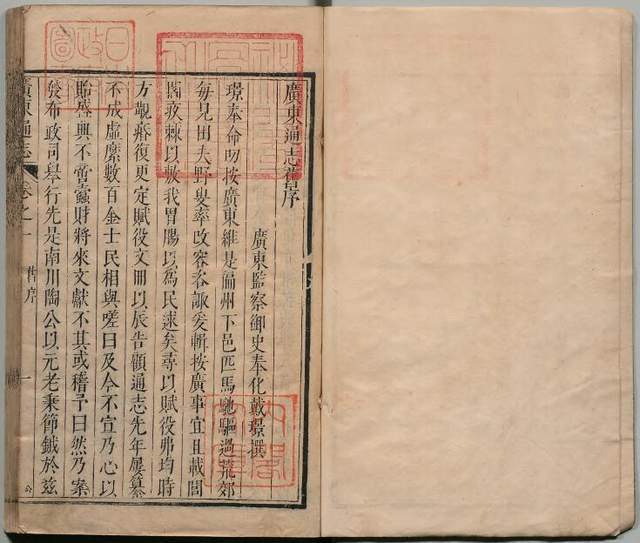 廣東通志舊序
廣東監察御史奉化戴璟撰
璟奉命叨按廣東維是偏州下邑匹馬馳驅過荒郊
每見田夫野叟率改容咨諏爰輯按廣事宜且載閭
閻疚棘以敷我胃腸以為民速矣尋以賦役弗均時
方觀瘠復更定賦役文冊以辰告顧通志先年屢纂
不成虛縻數百金士民相與嗟曰及今不宜乃心以
貽盛興不啻蠹財將來文獻不其或稽予曰然乃案
發布政司舉行先是南川陶公以元老秉節鉞於兹
廣東通志
卷之一
舊序
一